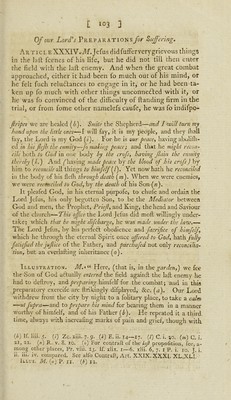 [ 103 ]
Of our Lord's PREPARATIONS for Suffering.
ARTICLE XXXIV. M. Jesus did suffer very grievous things
in the last scenes of his life, but he did not till then enter
the field with the last enemy. And when the great combat
approached, either it had been so much out of his mind, or
he felt such reluctances to engage in it, or he had been ta-
ken up so much with other things unconnected with it, or
he was so convinced of the difficulty of standing firm in the
trial, or from some other nameless cause, he was so indispo-
stripes we are healed (h). Smite the Shepherd—and I will turn my
hand upon the little ones—I will say, it is my people, and they shall
say, the Lord is my God (i). For he is our peace, having abolish-
ed in his flesh the enmity—so making peace; and that he might recon-
cile both to God in one body by the cross, having slain the enmity
thereby (k.) And (having made peace by the blood of his cross) by
him to reconcile all things to himself (l). Yet now hath he reconciled
in the body of his flesh through death (m). When we were enemies,
we were reconciled to God, by the death of his Son (n).
It pleased God, in his eternal purpose, to chuse and ordain the
Lord Jesus, his only begotten Son, to be the Mediator between
God and men, the Prophet, Priest, and King, the head and Saviour
of the church—This office the Lord Jesus did most willingly under-
take; which that he might discharge, he was made under the law.—
The Lord Jesus, by his perfect obedience and sacrifice of himself,
which he through the eternal Spirit once offered to God, hath fully
satisfied the justice of the Father, and purchased not only reconcilia-
tion, but an everlasting inheritance (o).
ILLUSTRATION. M. "Here (that is, in the garden,) we see
the Son of God actually entered the field against the last enemy he
had to destroy, and preparing himself for the combat; and in this
preparatory exercise are strikingly displayed, &c. (a). Our Lord
withdrew from the city by night to a solitary place, to take a calm
and and to prepare his mind for bearing them in a manner
worthy of himself, and of his Father (b). He repeated it a third
time, always with increasing marks of pain and grief, though with
(h) If. liii. 5. (i) Zec. xiii. 7. 9. (k) E. ii. 14—17. (l) C. i. 20. (m) C. i.
21, 22. (n) R. v. 8. 10. (o) For contrast of the last proposition, see, a-
mong other places,
ii. iii. iv. compared. See also Contrast, Art. XXIX. XXXI. XL. XLI.
ILLUST. M. (a) P. 11. (b) 11.